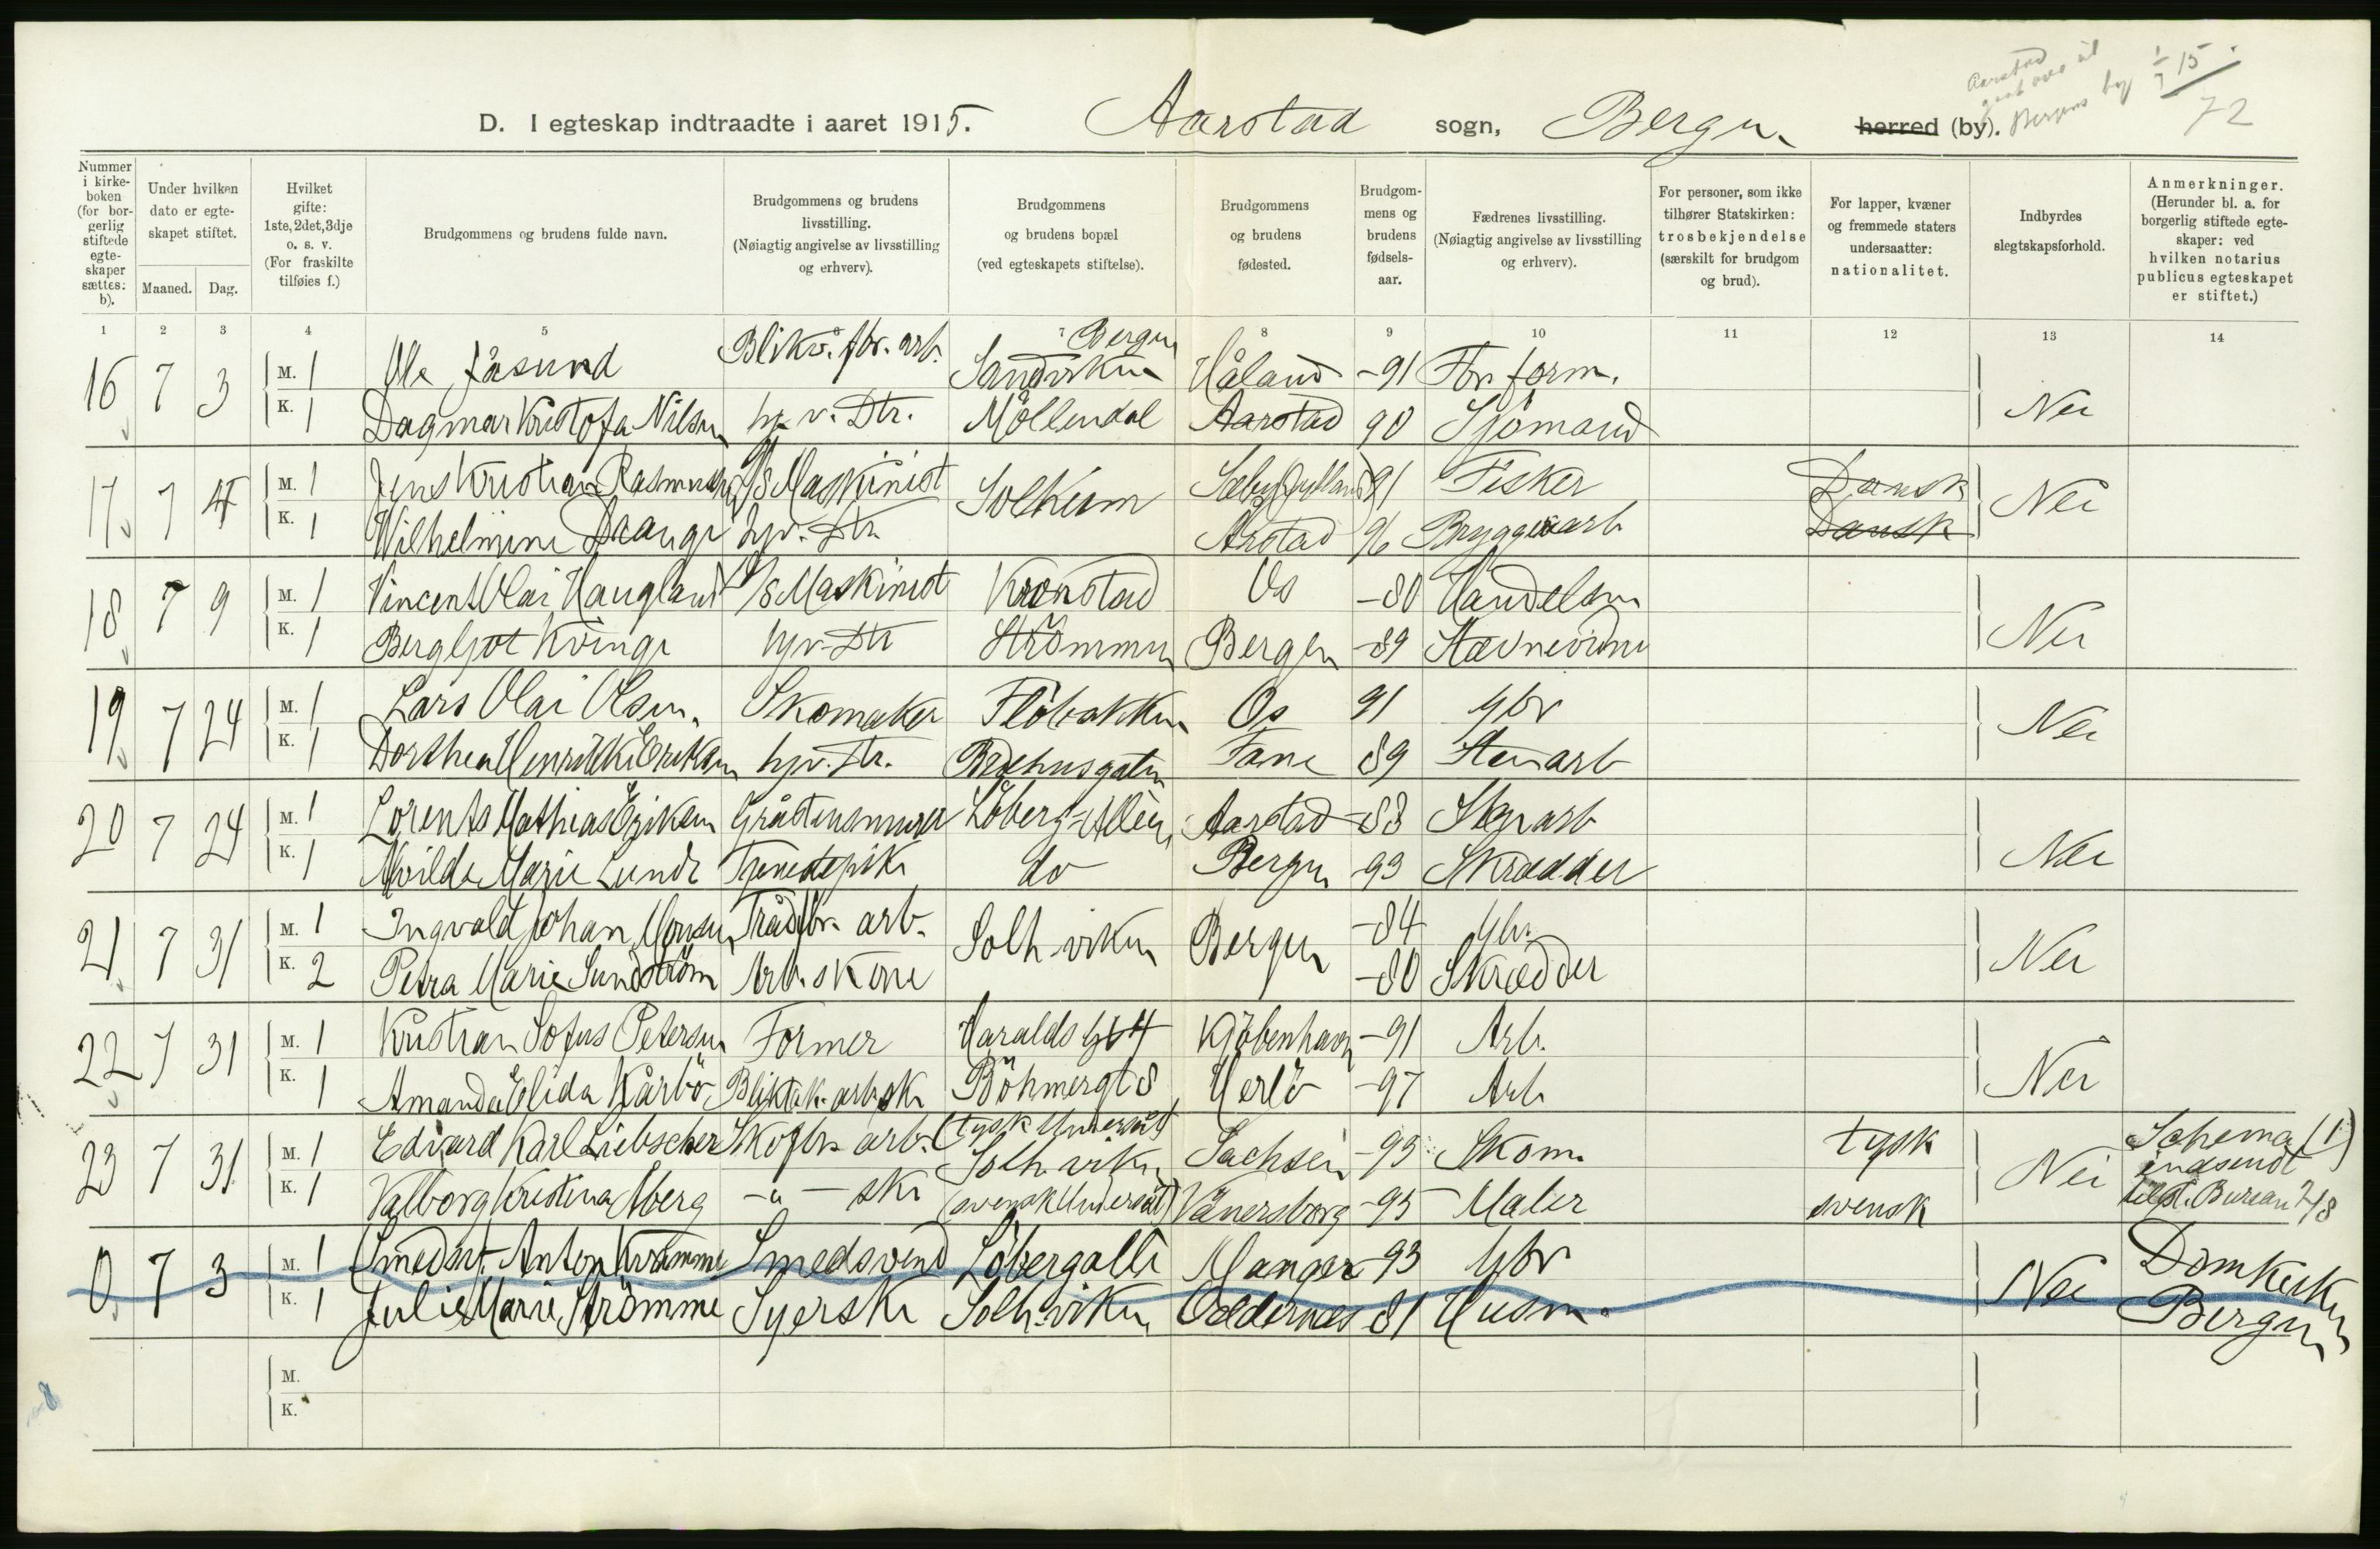 Aarstad
gaat over til
Bergens by 1/7 15.
72
D. I egteskap indtraadte i aaret 1915. Aarstad sogn, Bergen herred (by).
Nummer i kirke-boken (for bor-gerlig stiftede egte-skaper sættes: b).
Under hvilken dato er egte-skapet stiftet.
Maaned. Dag.
Hvilket gifte: 1ste, 2det, 3dje o. s. v. (For fraskilte tilføies f.)
Brudgommens og brudens fulde navn.
Brudgommens og brudens livsstilling. (Nøiagtig angivelse av livsstilling og erhverv).
Brudgommens og brudens bopæl (ved egteskapets stiftelse).
Brudgommens og brudens fødested.
Brudgom-mens og brudens fødsels-aar.
Fædrenes livsstilling. (Nøiagtig angivelse av livsstilling og erhverv).
For personer, som ikke tilhører Statskirken: trosbekjendelse (særskilt for brudgom og brud).
For lapper, kvæner og fremmede staters undersaatter: nationalitet.
Indbyrdes slegtskapsforhold.
Anmerkninger. (Herunder bl. a. for borgerlig stiftede egte-skaper: ved hvilken notarius publicus egteskapet er stiftet.)
1 2 3 4 5 6 7 8 9 10 11 12 13 14
16 7 3 M. 1 Ole Jåsund Blikv. fbr. arb. Bergen Sandviken Håland -91 Fbr. form. Nei
K. 1 Dagmar Kristofa Nilsen hj. v. Dtr. Möllendal Aarstad 90 Sjömand
17 7 4 M. 1 Jens Kristian Rasmussen D/S Maskinist Solheim Sæby Jylland 91 Fisker Dansk Nei
K. 1 Wilhelmine Drange hjv. Dtr. Årstad 96 Bryggearb Dansk
18 7 9 M. 1 Vincent Olai Haugland D/S Maskinist Kronstad Os -80 Handelsm Nei
K. 1 Bergljot Kvinge hjv. Dtr Strömmen Bergen -89 Stævnevidne
19 7 24 M. 1 Lars Olai Olsen. Skomaker Flöbakken Os 91 gbr Nei
K. 1 Dorthea Henrikke Eriksen hjv. Dtr. Brehusgaten Fane 89 Stenarb
20 7 24 M. 1 Lorents Mathias Eriksen Gråstensmurer Löberg-Alleen Aarstad -88 Stenarb Nei
K. 1 Alvilde Marie Lunde Tjenestepike do Bergen 93 Skrædder
21 7 31 M. 1 Ingvald Johan Monsen Trådfbr. arb. Solh.viken Bergen -84 gbr. Nei
K. 2 Petra Marie Sundström Arb.skone -80 Skrædder
22 7 31 M. 1 Kristian Sofus Petersen Former Haralds gt 4 Kjöbenhavn -91 Arb. Nei
K. 1 Amanda Elida Kårbö Bliktök. arbske Böhmergt 8 Herlö -97 Arb
23 7 31 M. 1 Edvard Karl Liebscher Skofbr. arb. (tysk Undersåt) Solh.viken Sachsen -95 Skom. tysk Nei Schema (1) indsendt til St. Bureau 2/8
K. 1 Valborg Kristina Åberg -"- ske (svensk Undersåt) Vänersborg -95 Maler svensk
0. 7 3 M. 1 Smedsv. Anton Kvamme Smedsvend Löbergalle Manger -93 gbr Nei Domkirken Bergen
K. 1 Julie Marie Strömme Syerske Solh.viken Oddernes 81 Husm.
M.
K.